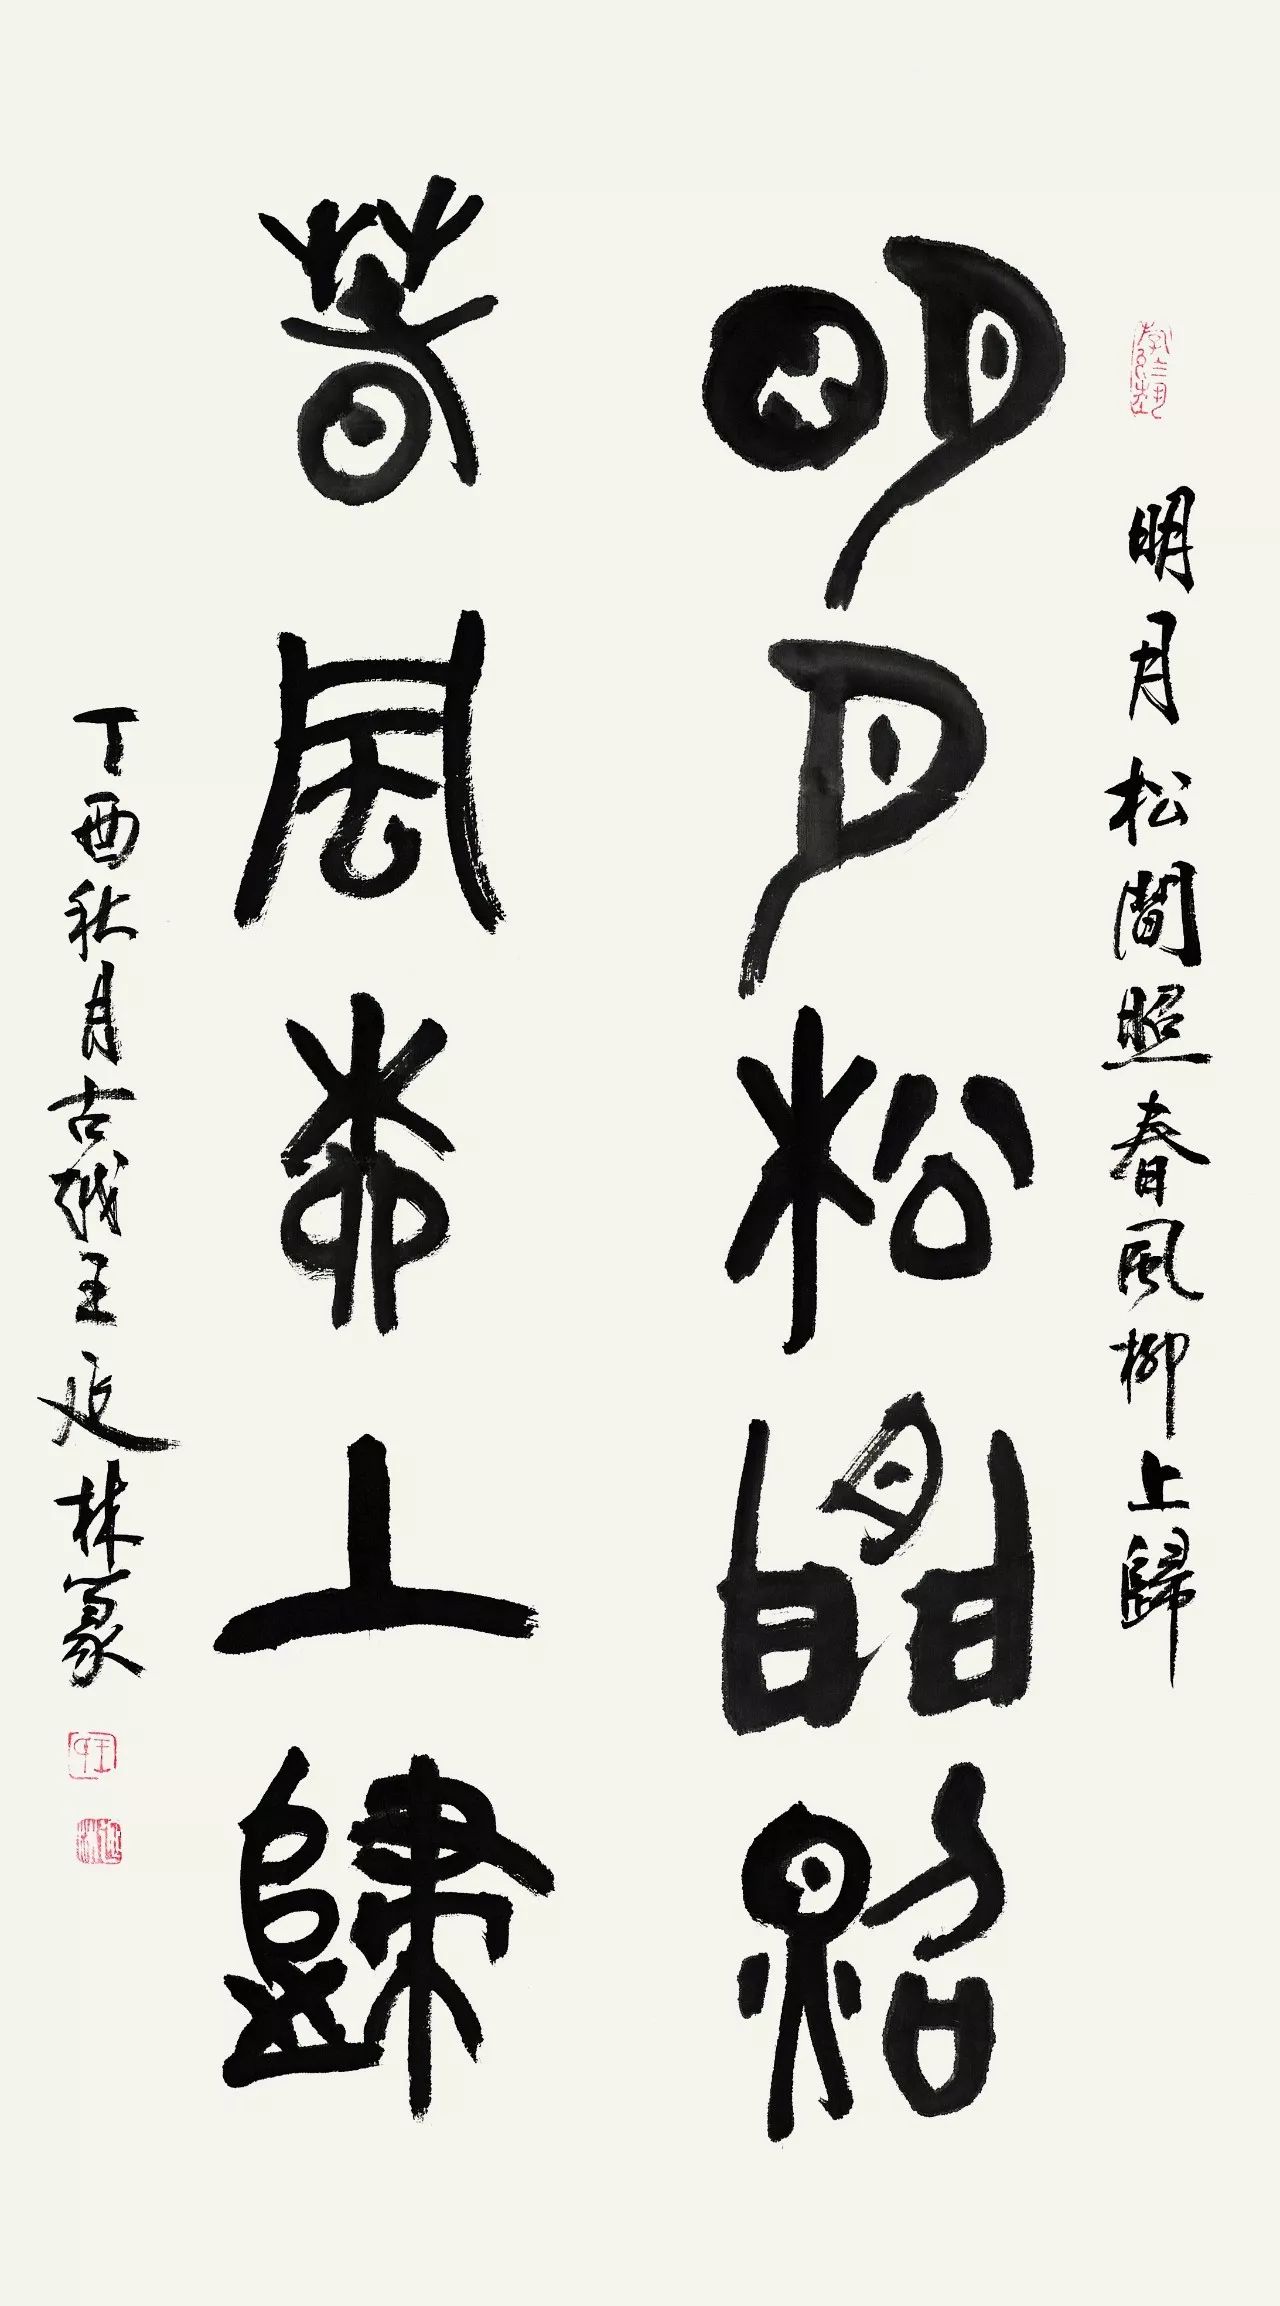 明月松間照春風柳上歸
明月松間照
春風柳上歸
丁酉秋月古越王延林篆